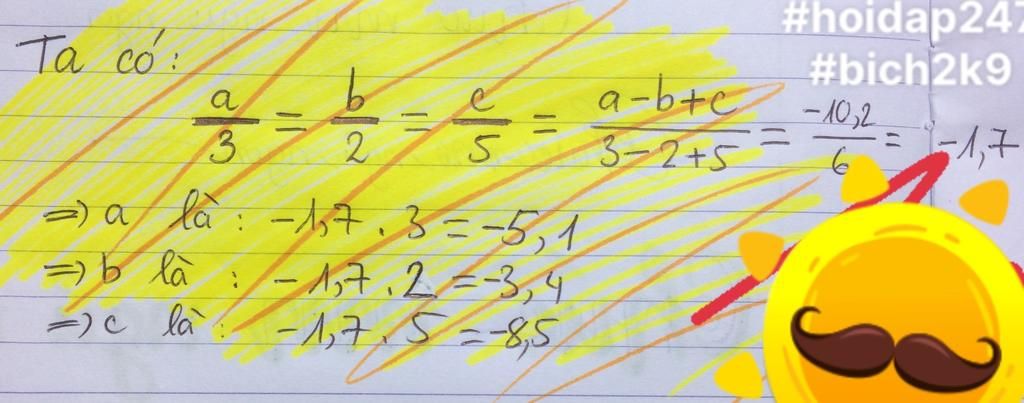 #hoidap247
#bich2k9
Ta có:
a/3 = b/2 = c/5 = a-b+c/3-2+5 = -10,2/6 = -1,7
=> a là: -1,7 . 3 = -5,1
=> b là: -1,7 . 2 = -3,4
=> c là: -1,7 . 5 = -8,5